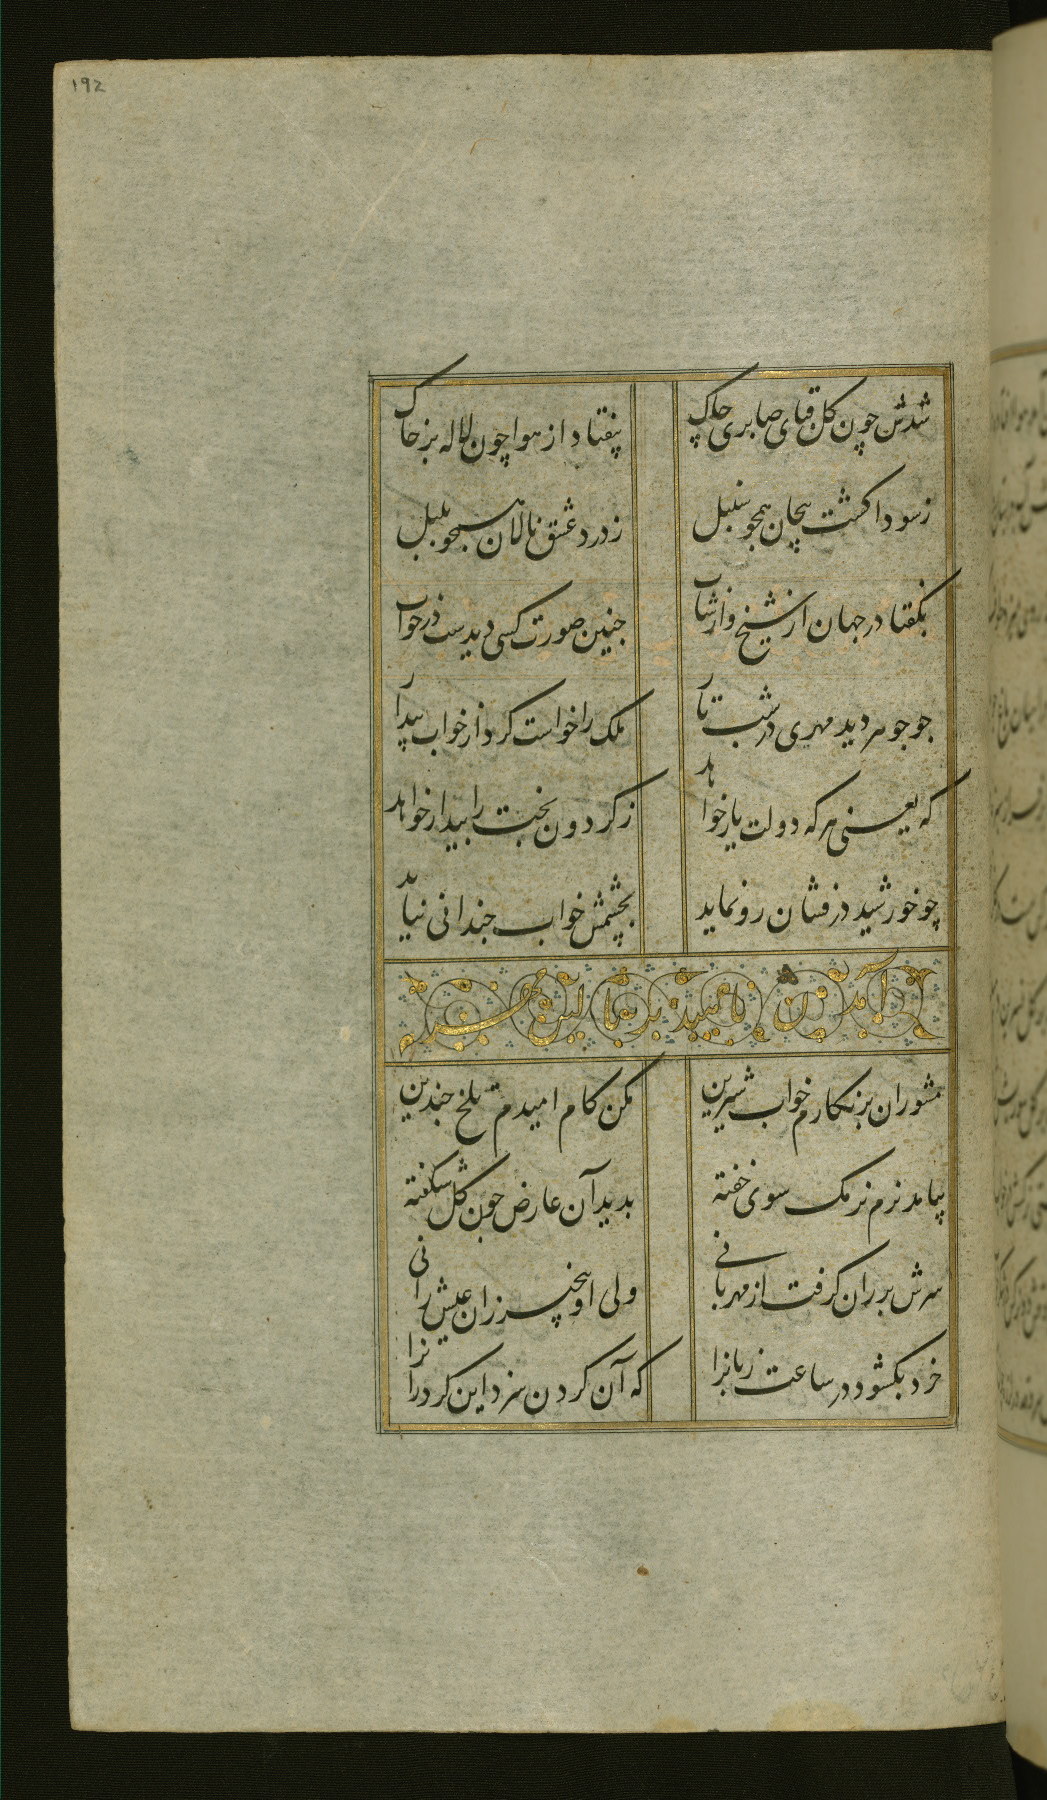 ۱۹۲
شدش چون کل قبای صابری چاک بیفتاد از هوا چون لاله بر خاک
ز سودا کشت پیچان همچو سنبل ز درد عشق نالان همچو بلبل
بکفتا در جهان از شیخ و از شاب چنین صورت کسی دیدست در خواب
چو جوهر دید مهری در شب تار ملک را خواست کرد از خواب بیدار
که یعنی هر که دولت یار خواهد ز کردون بخت را بیدار خواهد
چو خورشید درفشان رو نماید بچشمش خواب چندانی نیاید
آمدن ناهید بر بالین
مشوران بر نکارم خواب شیرین مکن کام امیدم تلخ چندین
بیامد نرم نرمک سوی خفته بدید آن عارض چون کل شکفته
سرش بر ران کرفت از مهربانی ولی او بیخبر زان عیش رانی
خرد بکشود در ساعت زبانرا که آن کردن سزد این کرد رانرا